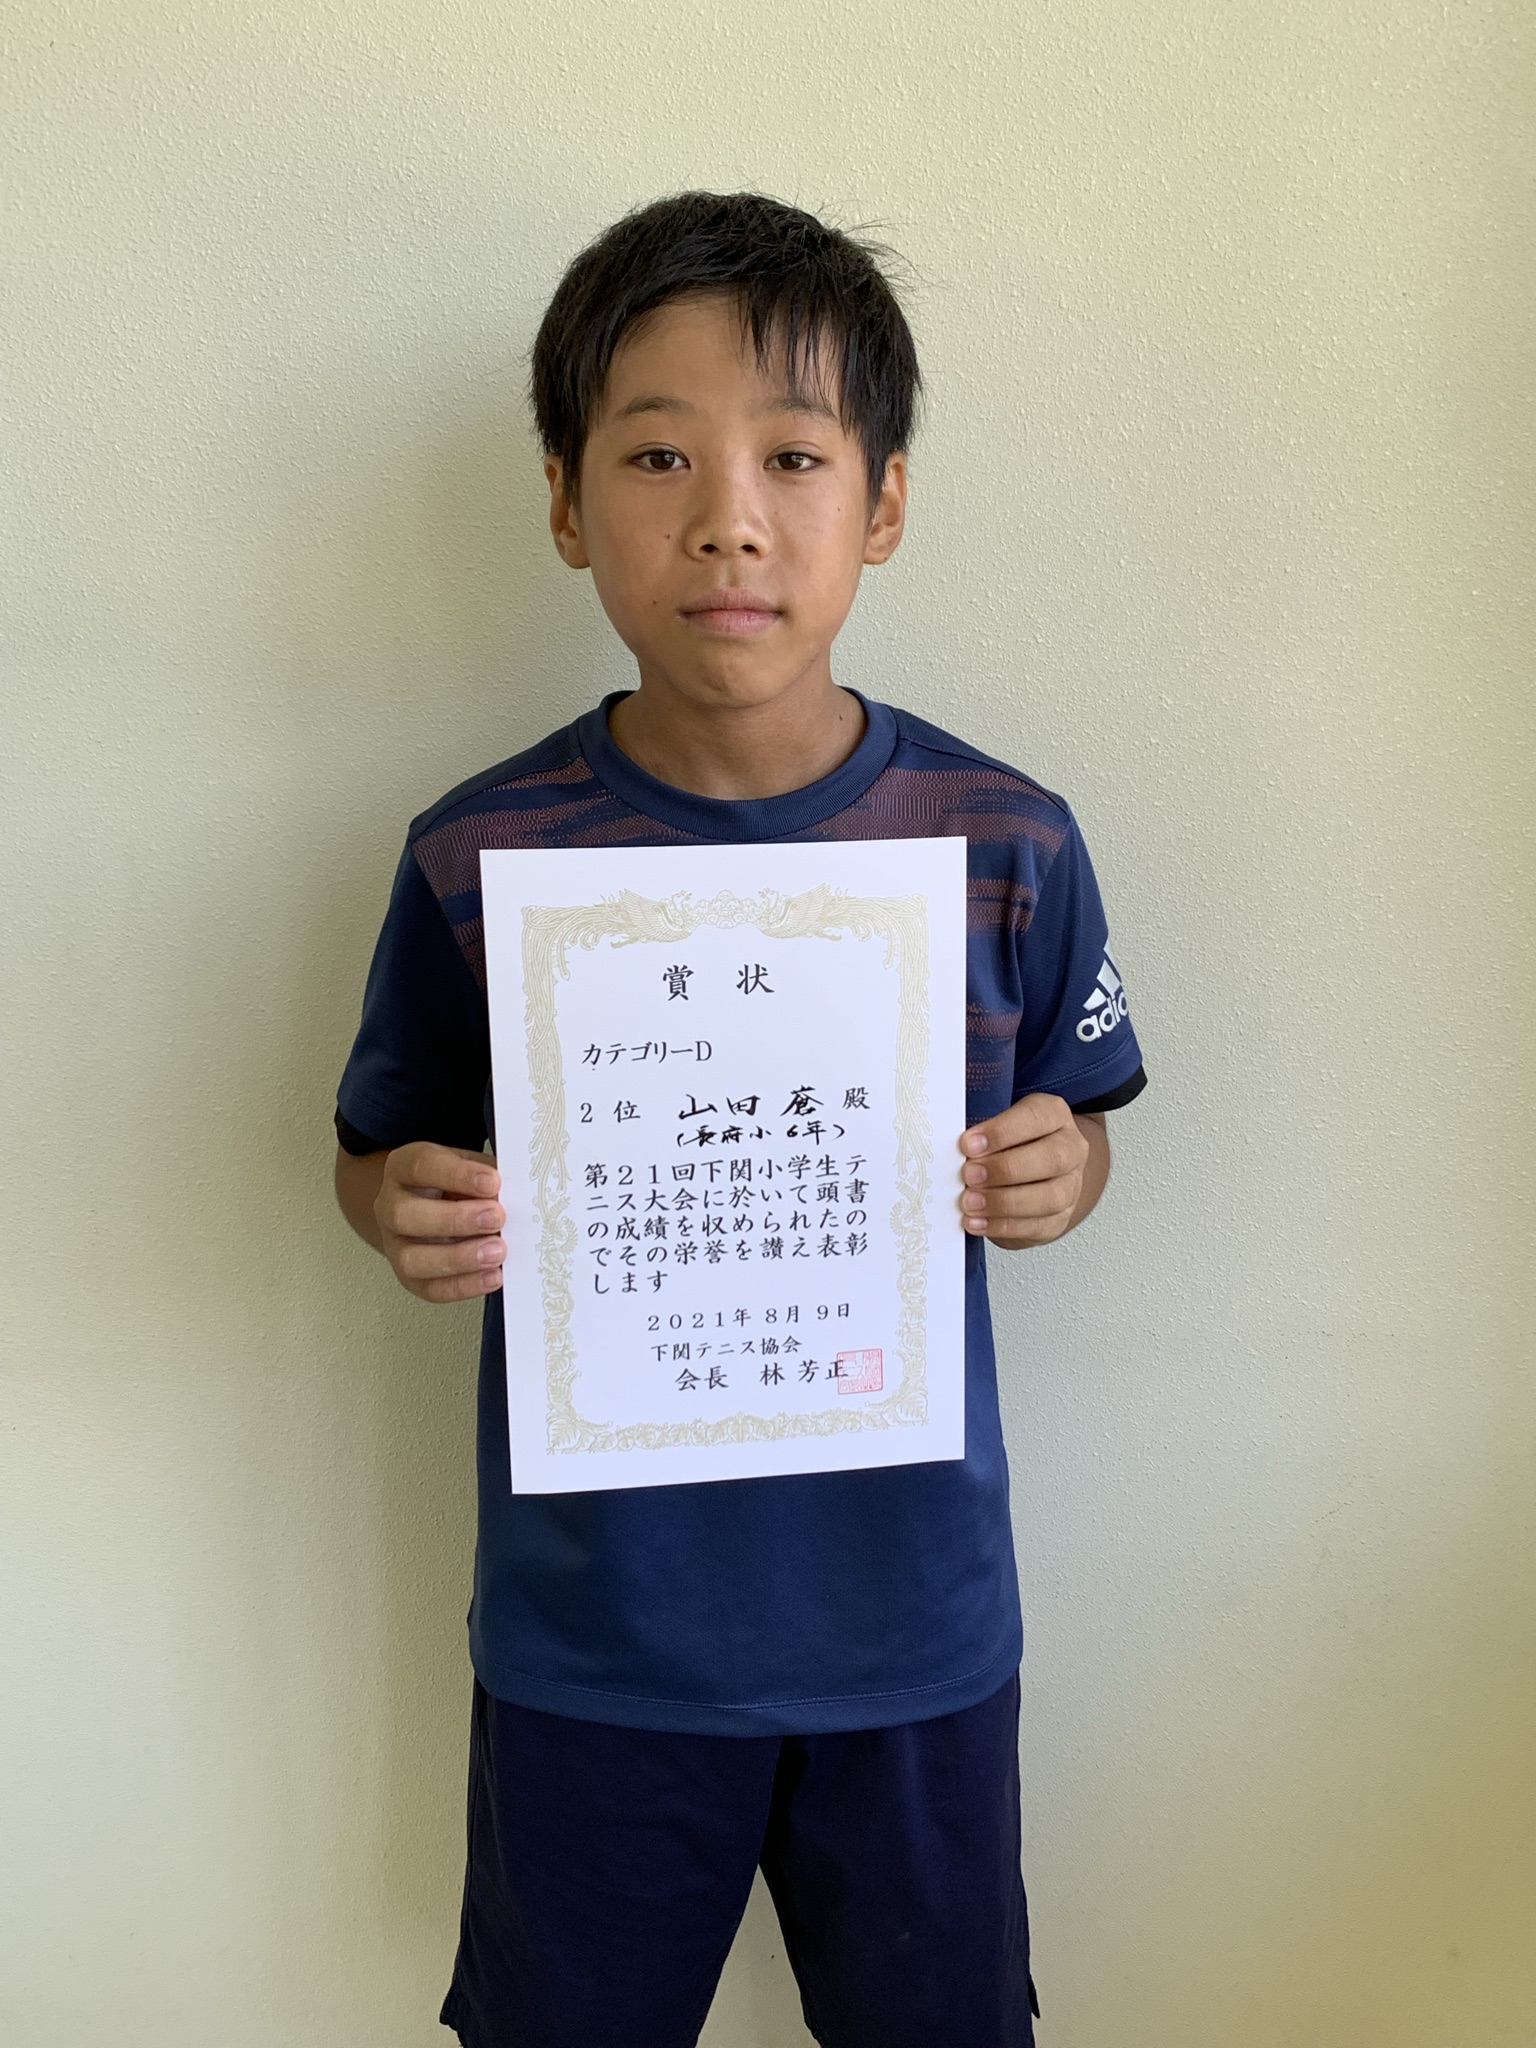 賞 状
カテゴリーD
2 位 山田 蒼 殿
(長府小 6年)
第21回下関小学生テ
ニス大会に於いて頭書
の成績を収められたの
でその栄誉を讃え表彰
します
2021年 8月 9日
下関テニス協会
会長 林 芳正
adid